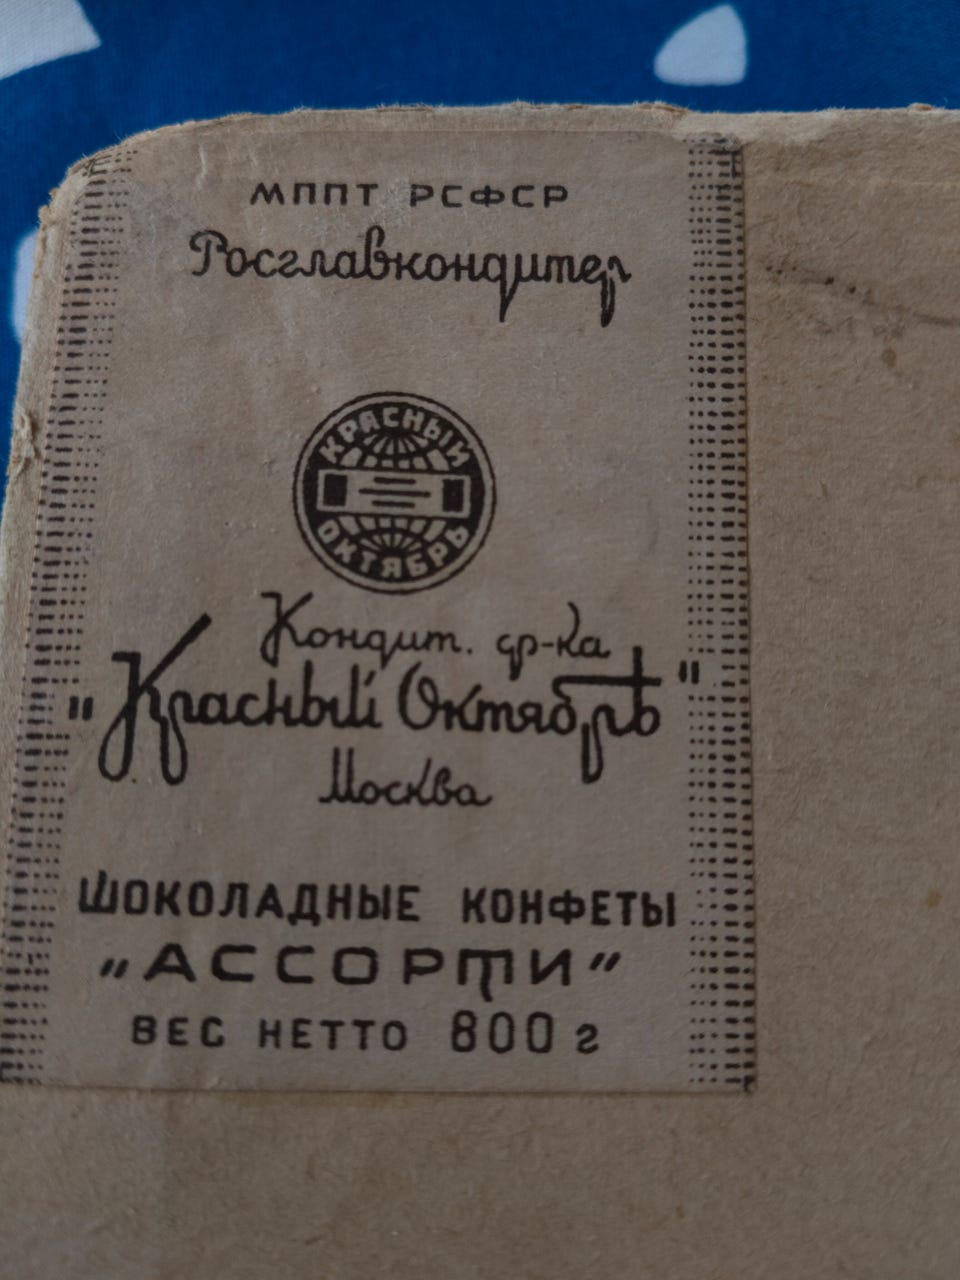 МППТ РСФСР
Росглавкондитер
КРАСНЫЙ
ОКТЯБРЬ
Кондит. ф-ка
"Красный Октябрь"
Москва
ШОКОЛАДНЫЕ КОНФЕТЫ
"АССОРТИ"
ВЕС НЕТТО 800 г